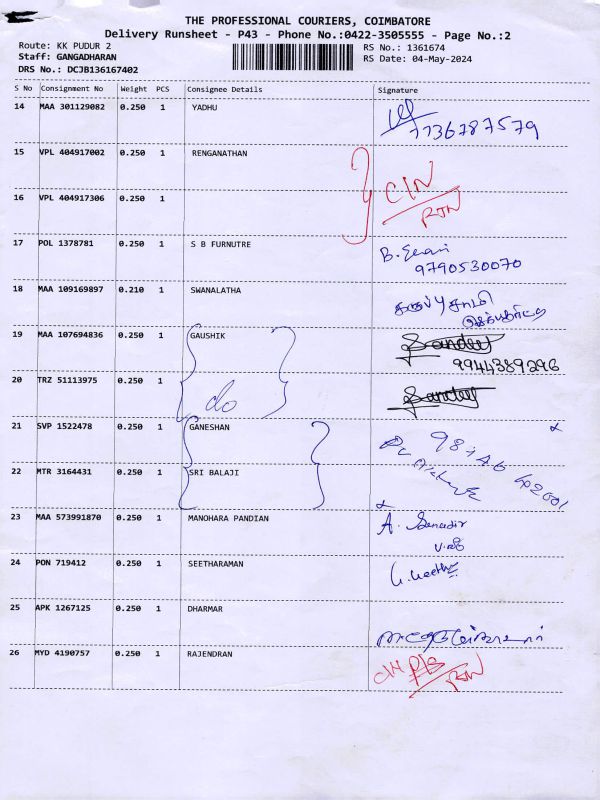 THE PROFESSIONAL COURIERS, COIMBATORE
Delivery Runsheet - P43 - Phone No.:0422-3505555 - Page No.:2
Route: KK PUDUR 2
RS No.: 1361674
Staff: GANGADHARAN
RS Date: 04-May-2024
DRS No.: DCJB136167402
S No Consignment No Weight PCS Consignee Details Signature
14 MAA 301129082 0.250 1 YADHU
7736787579
15 VPL 404917002 0.250 1 RENGANATHAN
C/N
16 VPL 404917306 0.250 1
RTN
17 POL 1378781 0.250 1 S B FURNUTRE
9790530070
18 MAA 109169897 0.210 1 SWANALATHA
கருப்புசாமி
19 MAA 107694836 0.250 1 GAUSHIK Sandeep
9944389296
20 TRZ 51113975 0.250 1 do Sandeep
21 SVP 1522478 0.250 1 GANESHAN
22 MTR 3164431 0.250 1 SRI BALAJI
23 MAA 573991870 0.250 1 MANOHARA PANDIAN
24 PON 719412 0.250 1 SEETHARAMAN
25 APK 1267125 0.250 1 DHARMAR
26 MYD 4190757 0.250 1 RAJENDRAN
RTN